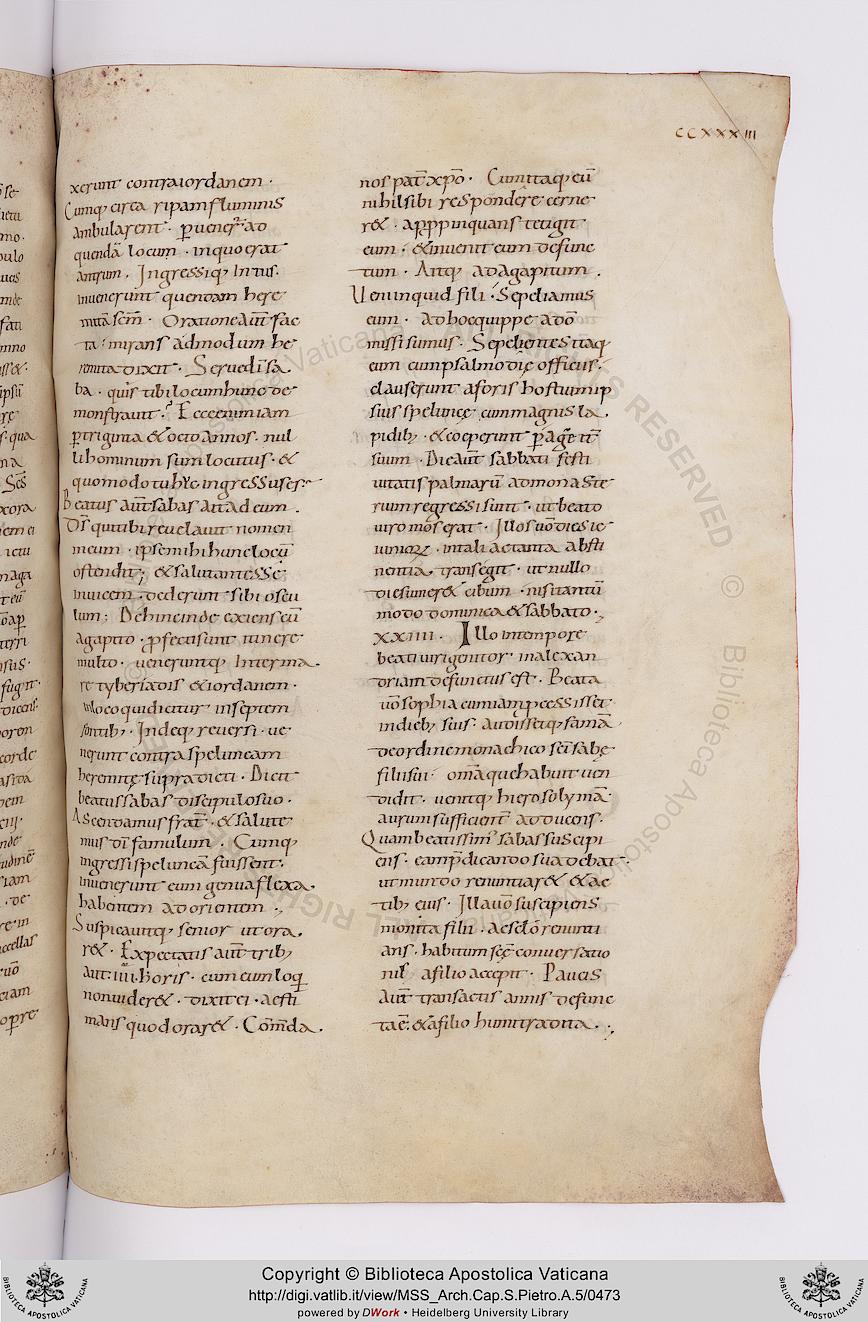 CCXXXIII
xerunt contra iordanem ·
Cumq; circa ripam fluminis
ambularent · ꝑuener̄ ad
quendā locum · inquo erat
antrum · Ingressiq; intus ·
inuenerunt quendam here
mitā sc̄m · Oratione aut̄ fac
ta · mirans admodum he
remita dixit · Serue dī sa
ba · quis tibi locum hunc de
monstrauit ? Ecce enim iam
ꝑ triginta & octo annos · nul
li hominum sum locutus · &
quomodo tu huc ingressus es ·
Beatus aut̄ sabas ait ad eum ·
Dš qui tibi reuelauit nomen
meum · ipse mihi hunc locū
ostendit ; & salutantes se
inuicem · dederunt sibi oscu
lum : Dehinc inde exiens cū
agapito · ꝓfecti sunt itinere
multo · ueneruntq; inter ma
re tyberiadis & iordanem ·
in loco qui dicitur in septem
fontib; · Indeq; reuersi · ue
nerunt contra speluncam
heremitę supradicti · Dicit
beatus sabas discipulo suo ·
Ascendamus frat̄ · & salute
mus dī famulum · Cumq;
ingressi speluncā fuissent ·
inuenerunt eum genua flexa
habentem ad orientem ·
Suspicauitq; senior ut ora
r& · Expectatis aut̄ trib;
aut · iiii · horis · cum eum loq
non uider& · dixit ei · aesti
mans quod orar& · Com̄da ·
nos pat̄ xp̄o · Cumitaq; eū
nihil sibi respondere cerne
r& · appropinquans tetigit
eum · & inuenit eum defunc
tum · Aitq; ad agapitum ·
Ueni inquid fili · Sepeliamus
eum · ad hoc quippe a dō
missi sumus · Sepelientes itaq;
eum cum psalmodię officiis ·
clauserunt a foris hostium ip
sius speluncę cum magnis la
pidib; · & coeperunt ꝑagere it̄
suum · Die aut̄ sabbati festi
uitatis palmarū ad monaste
rium regressi sunt · ut beato
uiro mos erat · Illos uō dies ie
iuniorꝝ · in tali ac tanta absti
nentia transegit · ut nullo
die sumer& cibum · nisi tantū
modo dominica & sabbato ·
XXIIII · Illo in tempore
beati uiri genitor · in alexan
driam defunctus est · Beata
uō sophia cum iam ꝑcessisset
in dieb; suis · audissetq; famā
de ordine monachico sc̄i sabę
filii sui · om̄a que habuit uen
didit · uenitq; hierosolymā
aurum sufficient̄ adducens ·
Quam beatissim' sabas suscipi
ens · eam p̄dicando suadebat
ut mundo renuntiar& & ac
tib; eius · Illa uō suscipiens
monita filii · ac scłō renunti
ans · habitum sc̄ę conuersatio
nis a filio accepit · Paucis
aut̄ transactis annis defunc
ta ē · & a filio humi tradita ·
Copyright © Biblioteca Apostolica Vaticana
http://digi.vatlib.it/view/MSS_Arch.Cap.S.Pietro.A.5/0473
powered by DWork • Heidelberg University Library